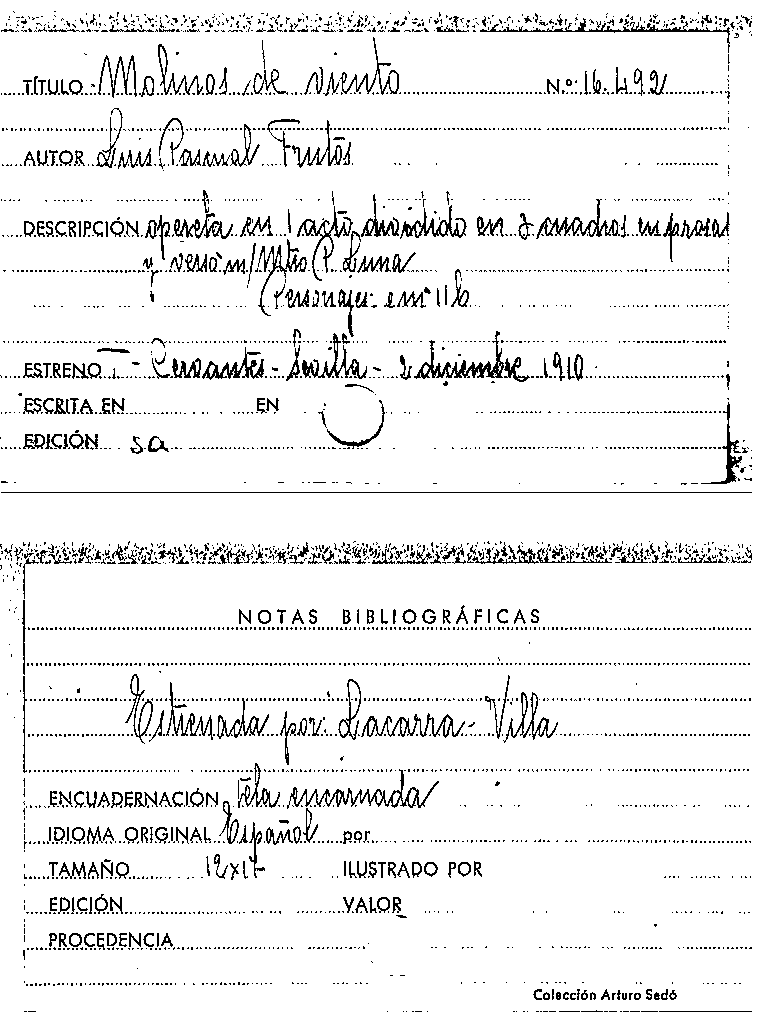 TÍTULO Molinos de viento N.º 16.492
AUTOR Luis Pascual Frutos
DESCRIPCIÓN opereta en 1 acto, dividido en 3 cuadros en prosa
y verso m/ Mtro P. Luna
Personajes: em 11 b
ESTRENO T - Cervantes - Sevilla - 2 diciembre 1910
ESCRITA EN EN
EDICIÓN sa
NOTAS BIBLIOGRÁFICAS
Estrenada por: Lacarra - Villa
ENCUADERNACIÓN tela encarnada
IDIOMA ORIGINAL Español por
TAMAÑO 12x17 ILUSTRADO POR
EDICIÓN VALOR
PROCEDENCIA
Colección Arturo Sedó